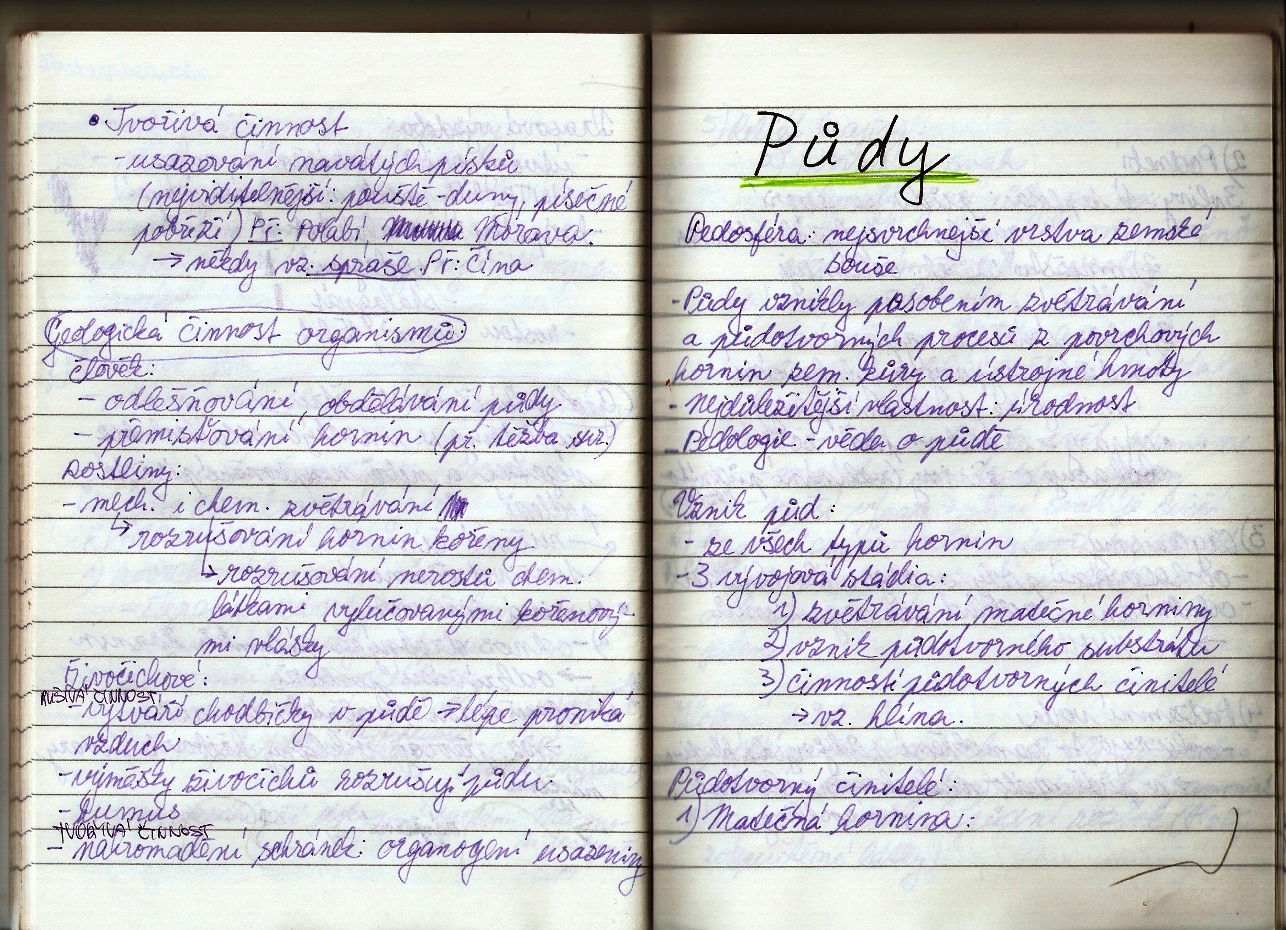 • Tvořivá činnost
- usazování navátých písků
(nejviditelnější: pouště - duny, písečné
pobřeží) Př: Polabí, Morava.
→ někdy vz. spraše. Př: Čína
Geologická činnost organismů:
člověk:
- odlesňování, obdělávání půdy
- přemisťování hornin (př. těžba sur.)
rostliny:
- mech. i chem. zvětrávání
↳ rozrušování hornin kořeny
↳ rozrušování nerostů chem.
látkami vylučovanými kořenový-
mi vlásky
Živočichové:
RUŠIVÁ ČINNOST
- vytváří chodbičky v půdě → lépe proniká
vzduch
- výměšky živočichů rozrušují půdu
- humus
TVOŘIVÁ ČINNOST
- nahromadění schránek: organogení usazeniny
Půdy
Pedosféra: nejsvrchnejší vrstva zemské
souše
- Půdy vznikly působením zvětrávání
a půdotvorných procesů z povrchových
hornin zem. kůry a ústrojné hmoty
- Nejdůležitější vlastnost: úrodnost
- Pedologie - věda o půdě
Vznik půd:
- ze všech typů hornin
- 3 vývojová stádia:
1) zvětrávání matečné horniny
2) vznik půdotvorného substrátu
3) činností půdotvorných činitelé
→ vz. hlína.
Půdotvorný činitelé:
1) Matečná hornina: